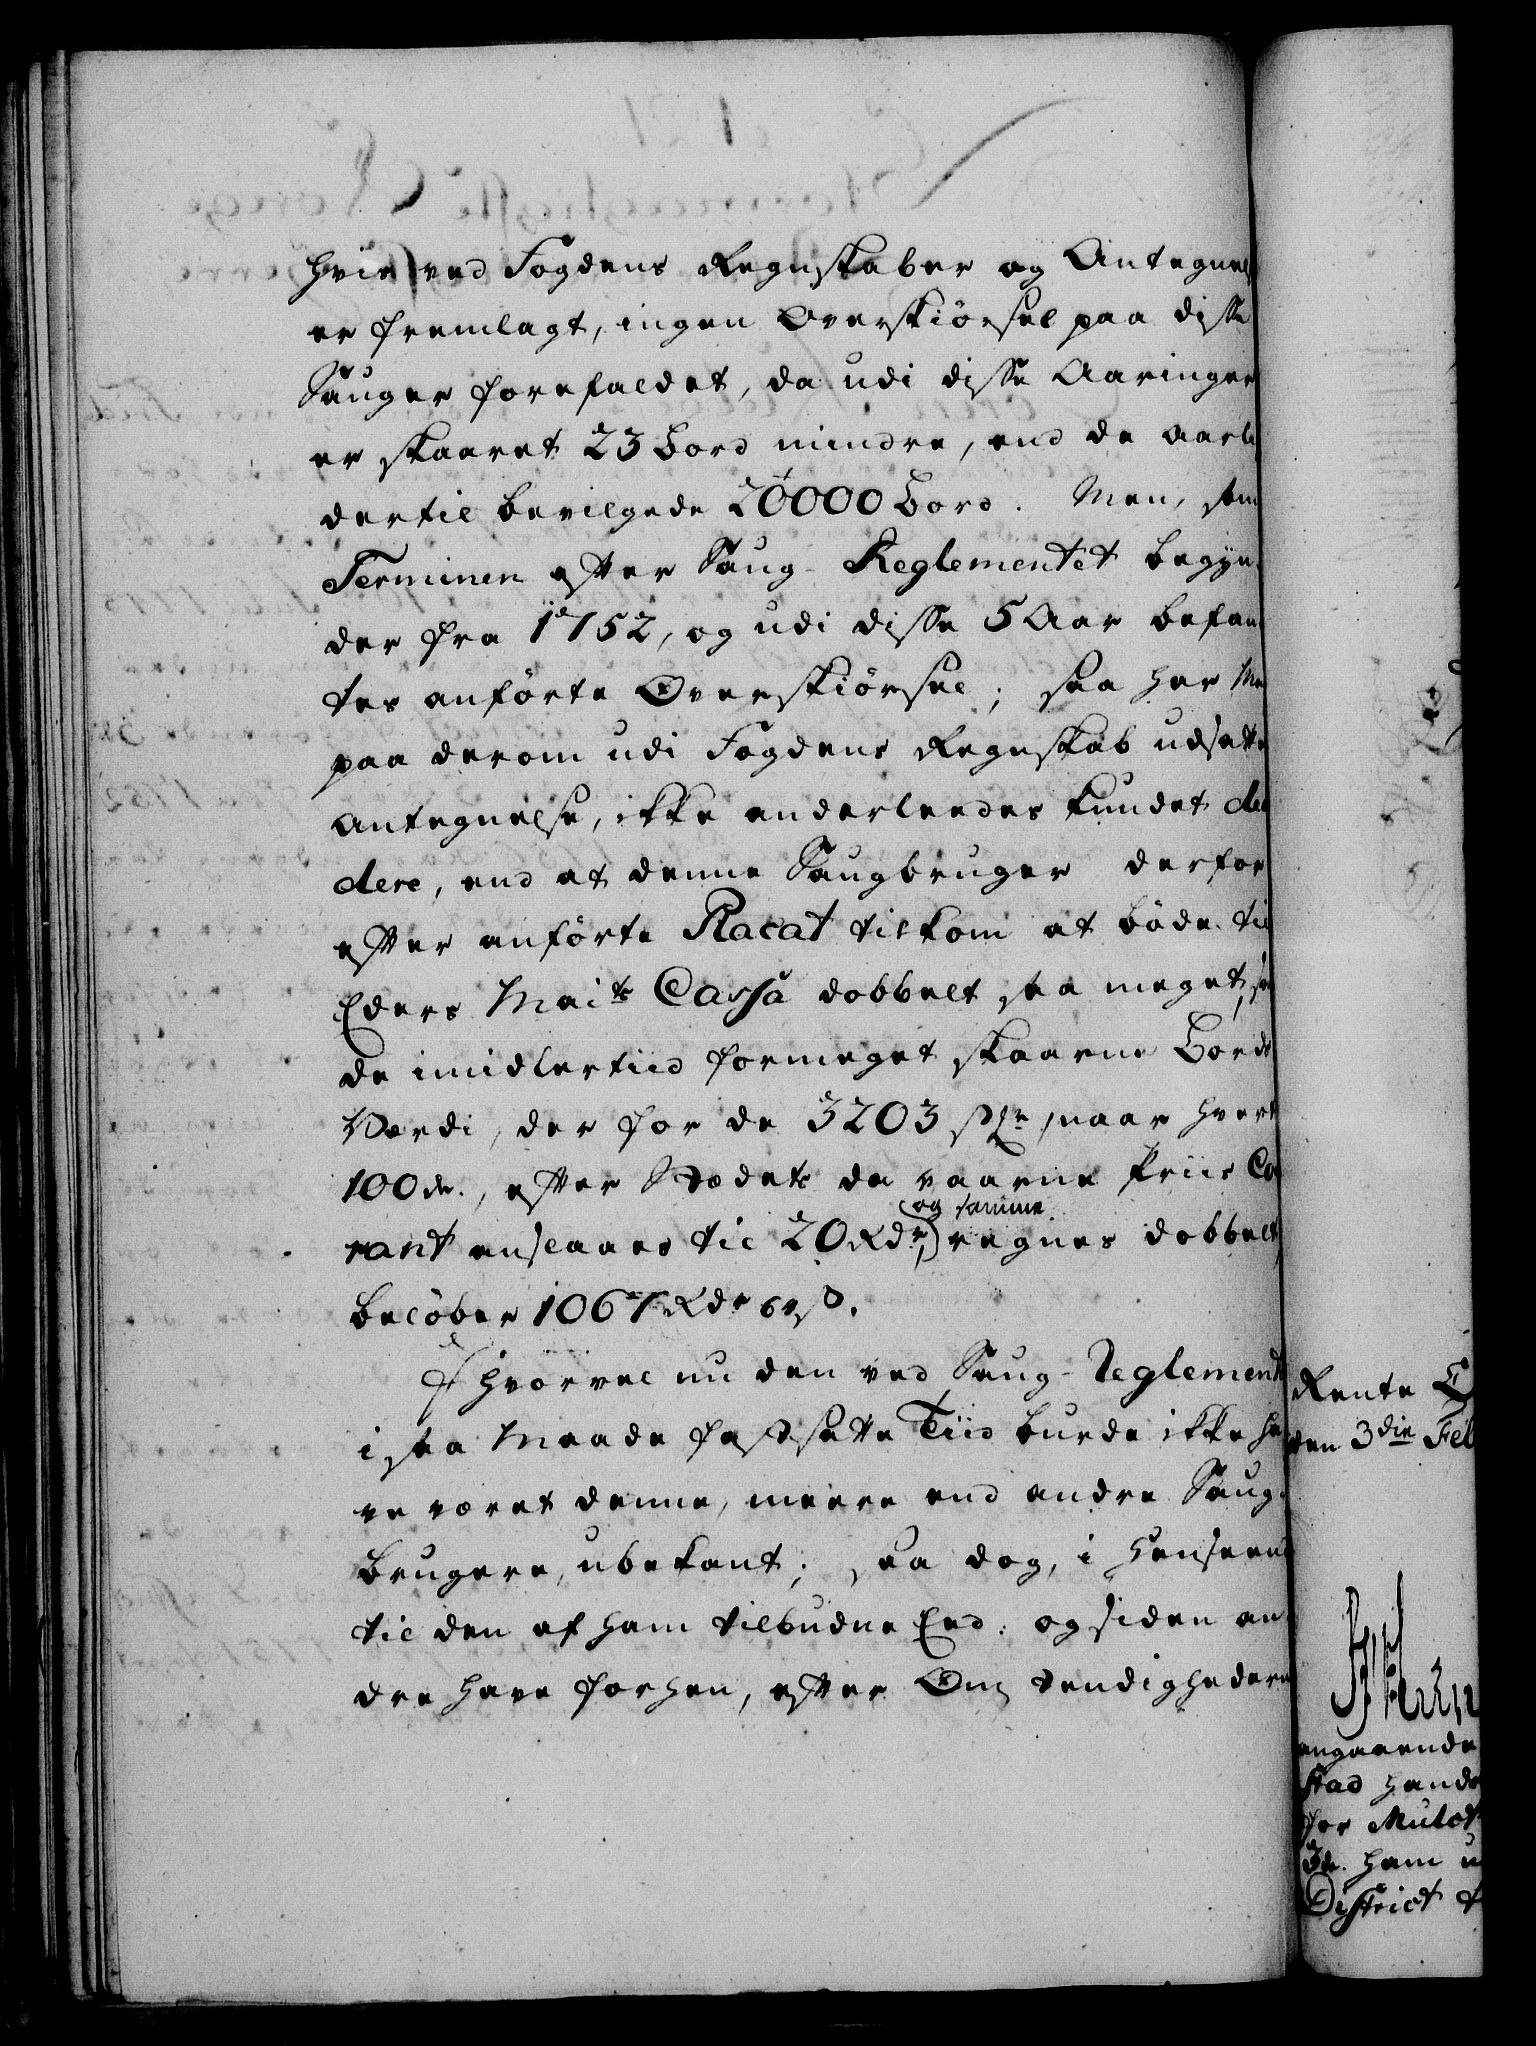 hvis ved Fogdens Regnskaber og Antegnels
er fremlagt, ingen Overskiørsel paa disse
Sauger forefaldet, da udi disse Aaringer
er skaaret 23 Bord mindre, end de aarli
dertil bevilgede 20000 Bord. Men, som
Terminen efter Saug-Reglementet begyn-
der fra 1752, og udi disse 5 Aar befan-
tes anførte Overskiørsel; saa har Ma
paa derom udi Fogdens Regnskab udsatte
Antegnelse, ikke anderleedes kundet de
dere, end at denne Saugbruger derfor
efter anførte Placat tilkom at bøde til
Eders Maits Cassa dobbelt saa meget, som
de imidlertiid formeget skaarne Bords
Værdi, der for de 3203 st:, naar hvert
100de., efter Stædets da vaarne Priis Co
rant ansaaes til 20 Rdr, (og samme) regnes dobbelt,
beløber 1067 Rdr 64 s.
Ihvorvel nu den ved Saug-Reglement
i saa Maade fastsatte Tiid burde ikke ha
ve været denne, meere end andre Saug-
brugere, ubekant; saa dog, i Henseen
til den af ham tilbudne Eed: og siden an-
dre have forhen, efter Omstændighederne
Rente
den 3die Feb
angaaende
stad hands
for Mulct
ham u
District